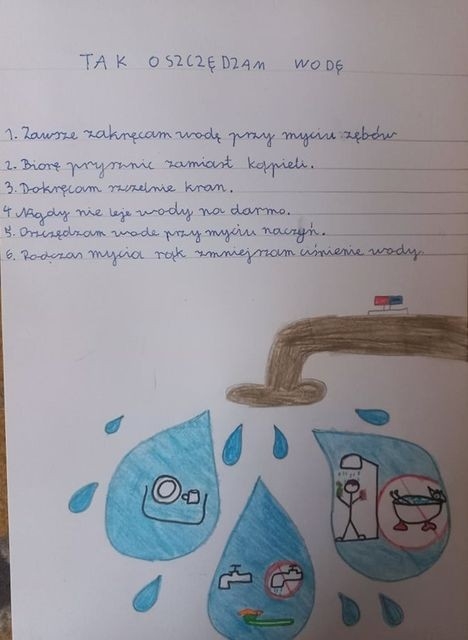 TAK OSZCZĘDZAM WODĘ
1. Zawsze zakręcam wodę przy myciu zębów
2. Biorę prysznic zamiast kąpieli.
3. Dokręcam szczelnie kran.
4 Nigdy nie leje wody na darmo.
5. Oszczędzam wode przy myciu naczyń.
6. Podczas mycia rąk zmniejszam ciśnienie wody.